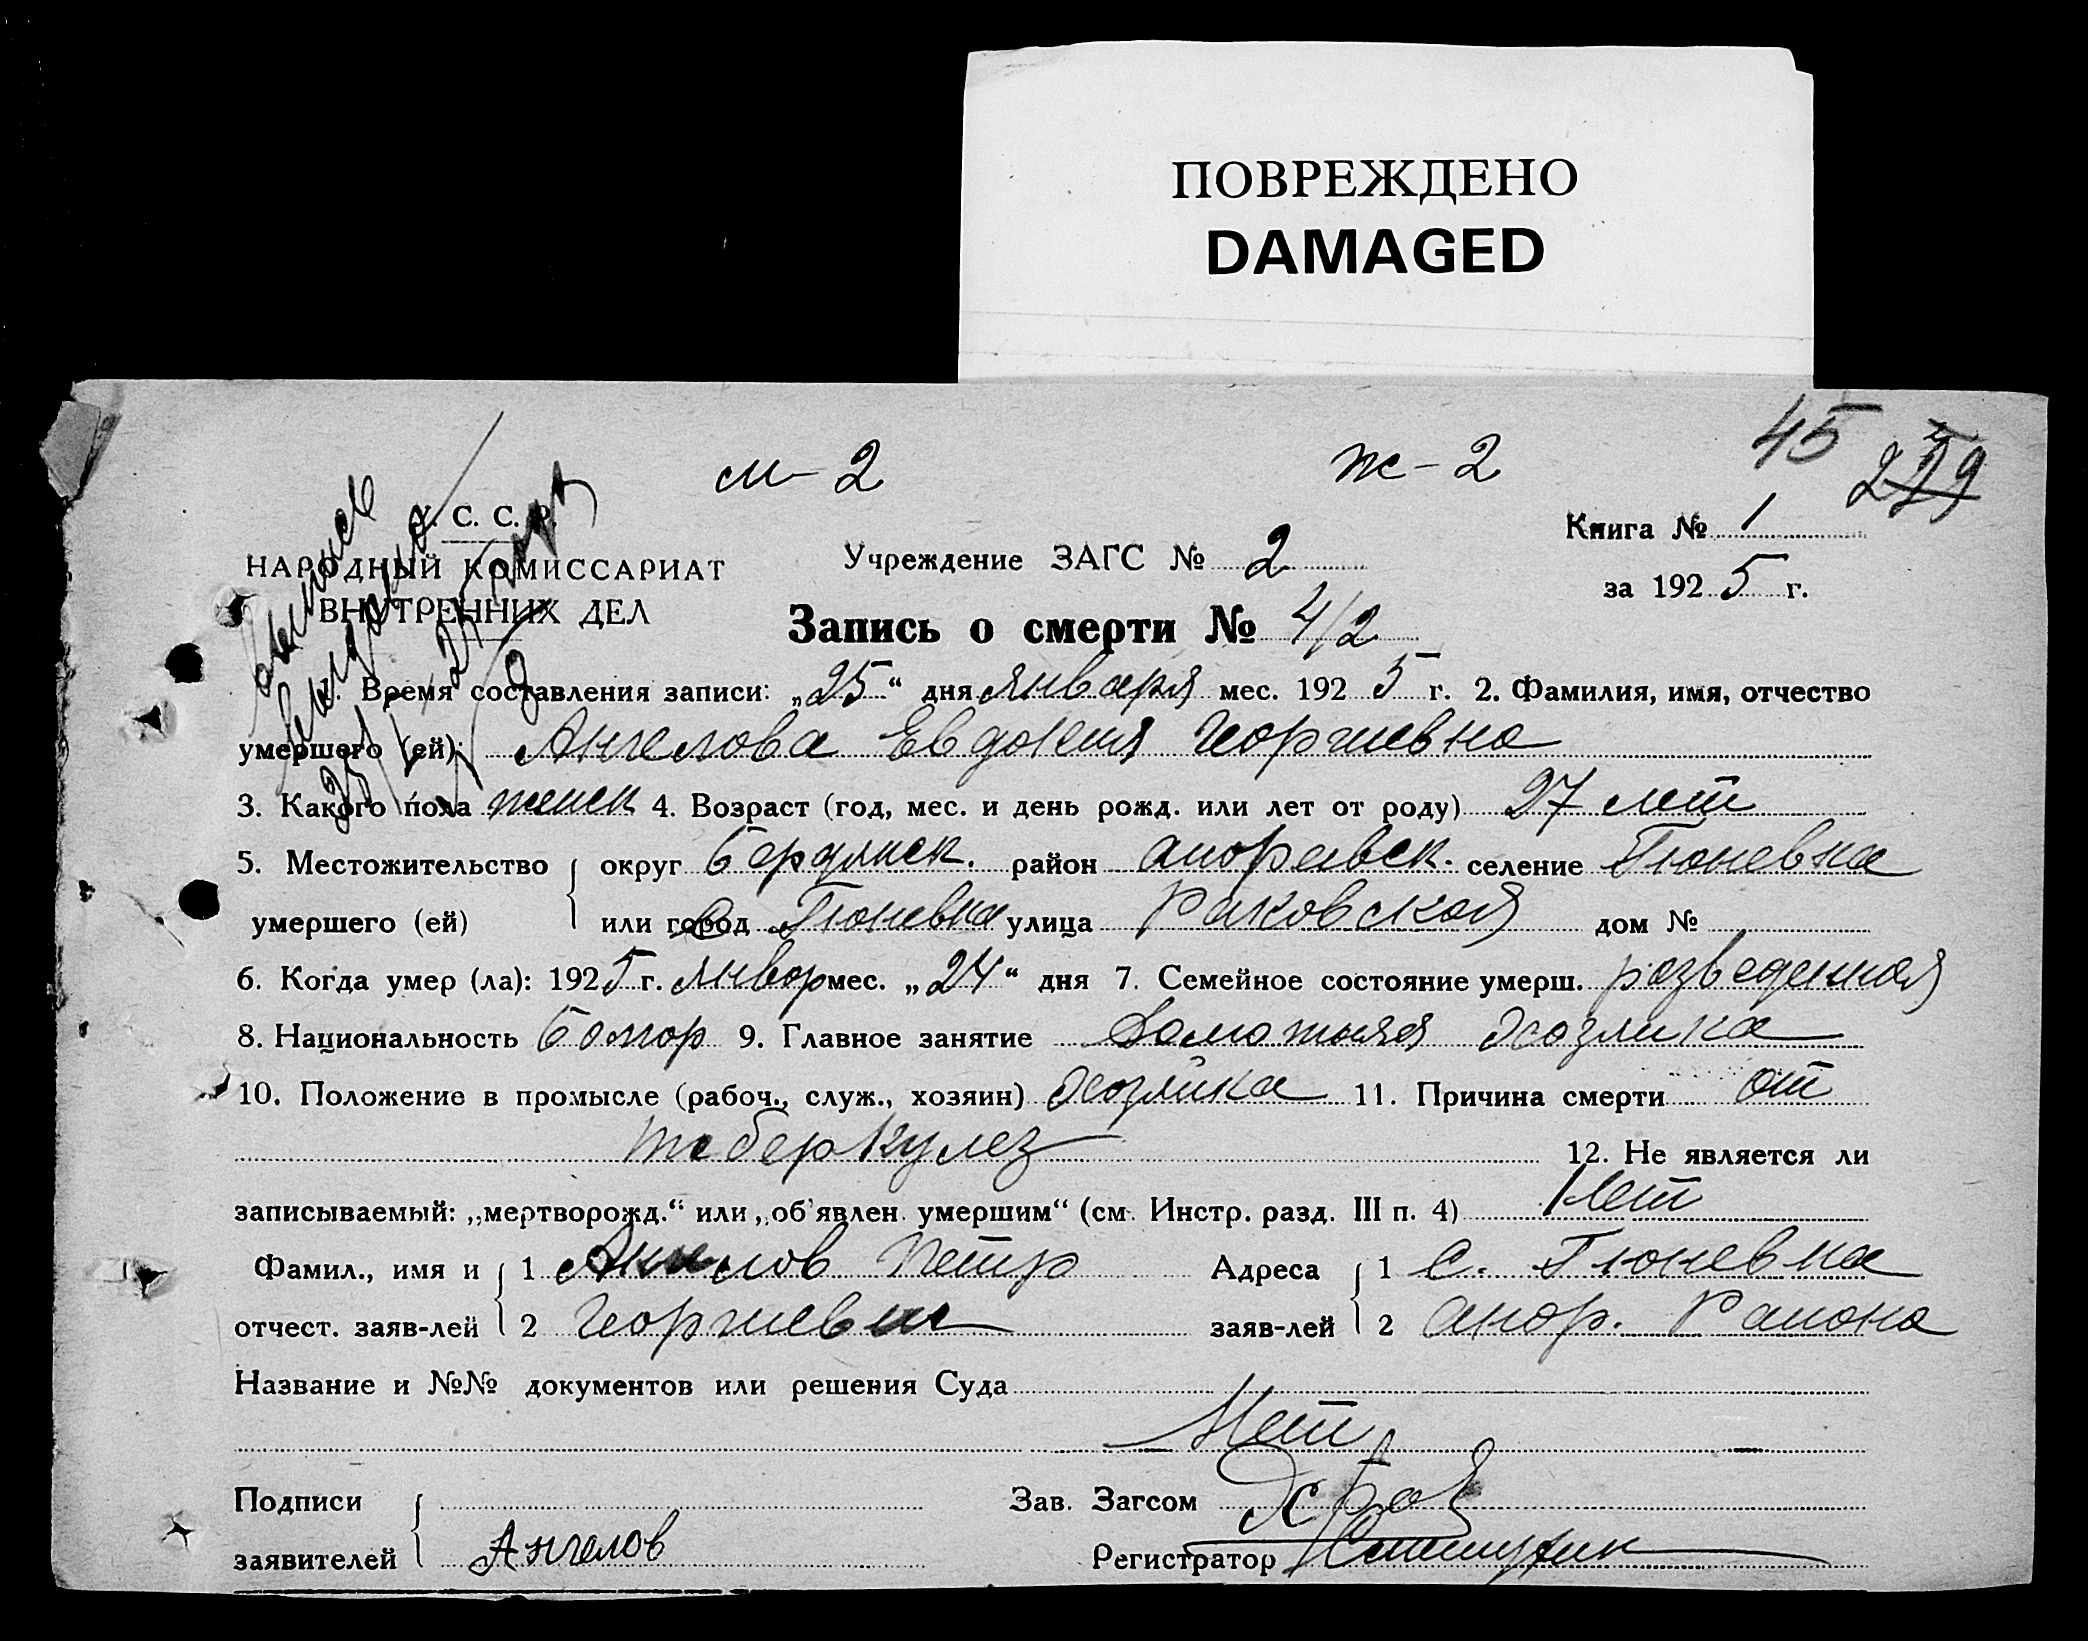 ПОВРЕЖДЕНО
DAMAGED
45
м - 2
ж - 2
У. С. С. Р.
НАРОДНЫЙ КОМИССАРИАТ
ВНУТРЕННИХ ДЕЛ
Выпись
Учреждение ЗАГС № 2
Книга № 1
за 1925 г.
Запись о смерти № 4/2
1. Время составления записи: „25“ дня января мес. 1925 г. 2. Фамилия, имя, отчество
умершего (ей): Ангелова Евдокия Георгиевна
3. Какого пола женск 4. Возраст (год, мес. и день рожд. или лет от роду) 27 лет
5. Местожительство округ Бердянск. район селение Гюневка
умершего (ей) или город с Гюневка улица Раковской дом №
6. Когда умер (ла): 1925 г. январ мес. „24“ дня 7. Семейное состояние умерш. разведенная
8. Национальность Болгар 9. Главное занятие хозяика
10. Положение в промысле (рабоч., служ., хозяин) хозяйка 11. Причина смерти от
тоберкулез 12. Не является ли
записываемый: „мертворожд.“ или „об'явлен умершим“ (см. Инстр. разд. III п. 4) Нет
Фамил., имя и 1 Ангелов Петр Адреса 1 с. Гюневка
отчест. заяв-лей 2 Георгиевич заяв-лей 2 Раиона
Название и №№ документов или решения Суда
Нет
Подписи Зав. Загсом
заявителей Ангелов Регистратор